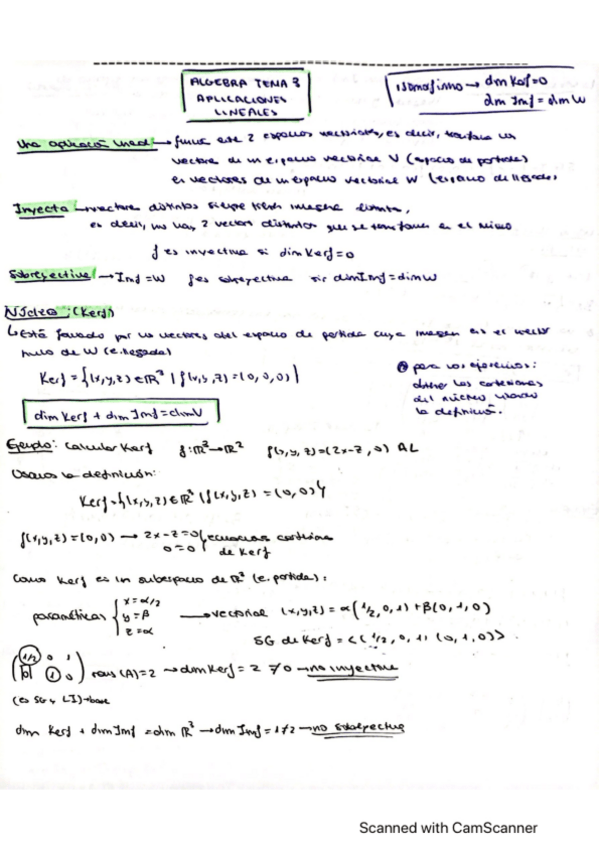 ALGEBRA TEMA 3
APLICACIONES
LINEALES
isomorfismo → dim Kerf=0
dim Imf = dim W
Una aplicación lineal → función entre 2 espacios vectoriales, es decir, transforma un
vectores de un espacio vectorial V (espacio de partida)
en vectores de un espacio vectorial W (espacio de llegada)
Inyectiva → vectores distintos siempre tienen imagen distinta,
es decir, no hay 2 vectores distintos que se transformen en el mismo
f es inyectiva si dim Kerf=0
Sobreyectiva → Imf = W f es sobreyectiva si dim Imf = dim W
Núcleo: (Kerf)
↳ Está formado por los vectores del espacio de partida cuya imagen es el vector
nulo de W (e. llegada)
Kerf = {(x,y,z) ∈ ℝ³ | f(x,y,z) = (0,0,0)}
para los ejercicios:
obtener las cartesianas
del núcleo usando
la definición.
dim Kerf + dim Imf = dim V
Ejemplo: Calcular Kerf f: ℝ³ → ℝ² f(x,y,z) = (2x-z, 0) AL
Usamos la definición:
Kerf = {(x,y,z) ∈ ℝ³ / f(x,y,z) = (0,0)}
f(x,y,z) = (0,0) → 2x-z=0 ecuaciones cartesianas
0=0 de Kerf
Como Kerf es un subespacio de ℝ³ (e. partida):
paramétricas { x = α/2
y = β
z = α
→ vectorial (x,y,z) = α(1/2, 0, 1) + β(0, 1, 0)
SG de Kerf = <(1/2, 0, 1), (0, 1, 0)>
(1/2 0 1
0 1 0) rang(A)=2 → dim Kerf = 2 ≠ 0 → no inyectiva
(es SG y LI) → base
dim Kerf + dim Imf = dim ℝ³ → dim Imf = 1 ≠ 2 → no sobreyectiva
Scanned with CamScanner